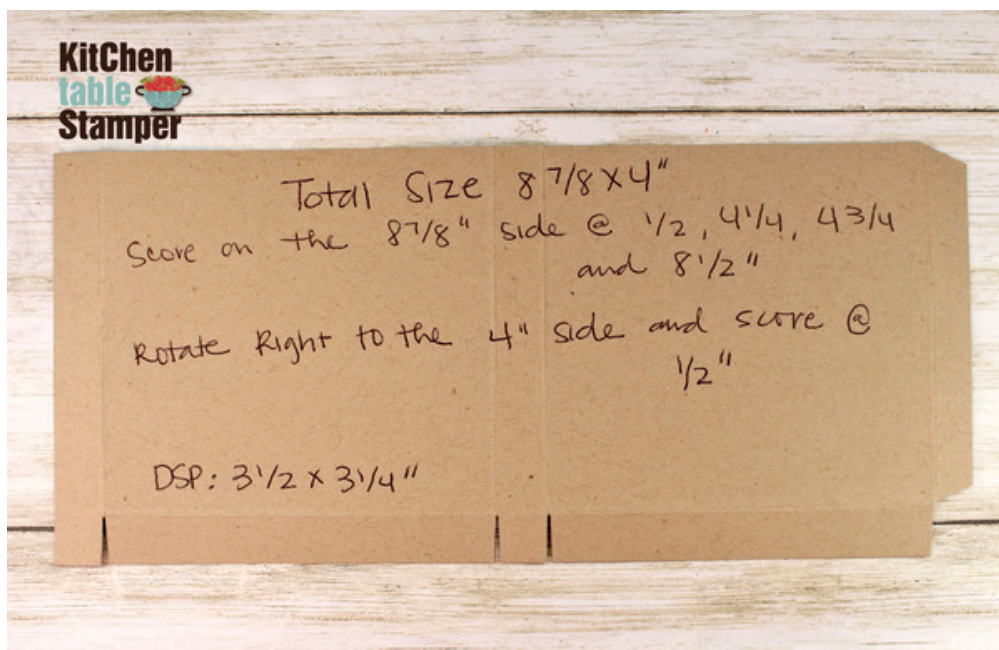 KitChen
table
Stamper
Total Size 8 7/8 X 4"
Score on the 8 7/8" side @ 1/2, 4 1/4, 4 3/4
and 8 1/2"
Rotate Right to the 4" side and score @
1/2"
DSP: 3 1/2 x 3 1/4"